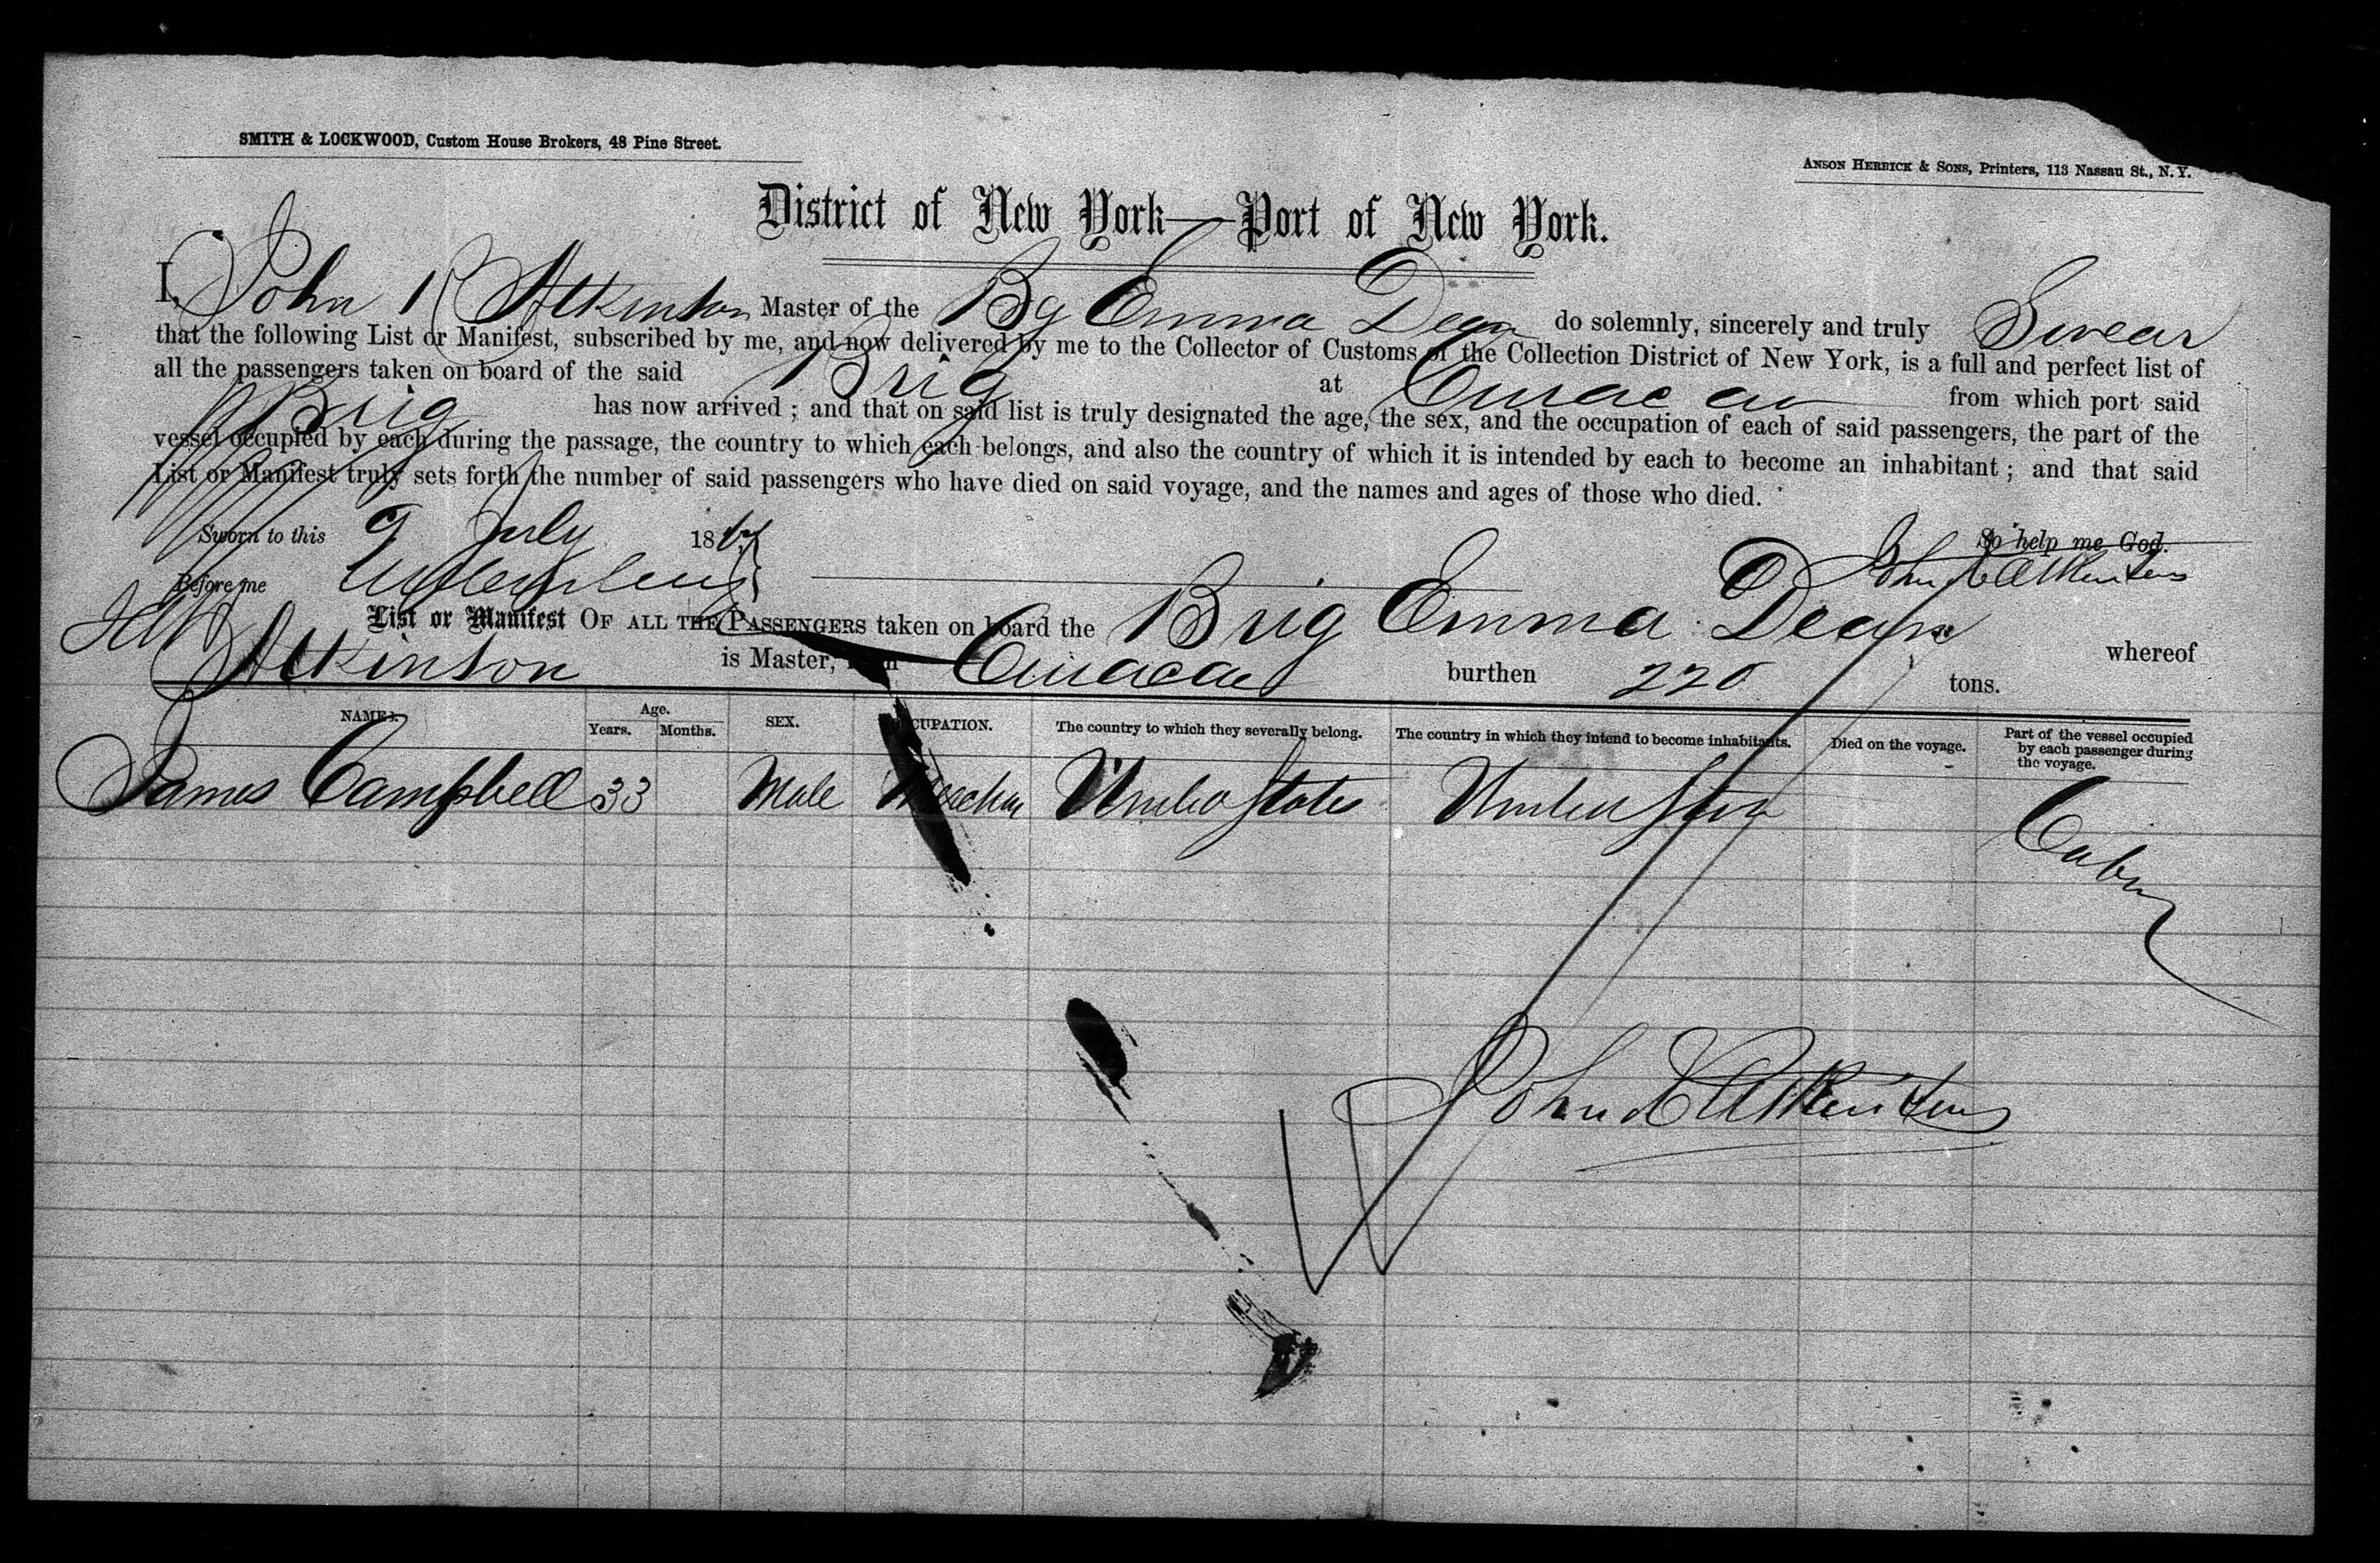 SMITH & LOCKWOOD, Custom House Brokers, 48 Pine Street.
ANSON HERRICK & SONS, Printers, 113 Nassau St., N. Y.
District of New York—Port of New York.
I, John R Atkinson Master of the Bg Emma Dean do solemnly, sincerely and truly Swear
that the following List or Manifest, subscribed by me, and now delivered by me to the Collector of Customs of the Collection District of New York, is a full and perfect list of
all the passengers taken on board of the said Brig at Curacao from which port said
Brig has now arrived ; and that on said list is truly designated the age, the sex, and the occupation of each of said passengers, the part of the
vessel occupied by each during the passage, the country to which each belongs, and also the country of which it is intended by each to become an inhabitant ; and that said
List or Manifest truly sets forth the number of said passengers who have died on said voyage, and the names and ages of those who died.
Sworn to this 9 July 18
So help me God.
Before me
John R Atkinson
List or Manifest OF ALL THE PASSENGERS taken on board the Brig Emma Dean whereof
Atkinson is Master, from Curacao burthen 220 tons.
NAMES. Age. Years. Months. SEX. OCCUPATION. The country to which they severally belong. The country in which they intend to become inhabitants. Died on the voyage. Part of the vessel occupied by each passenger during the voyage.
James Campbell 33 Male United States United States Cabin
John R Atkinson